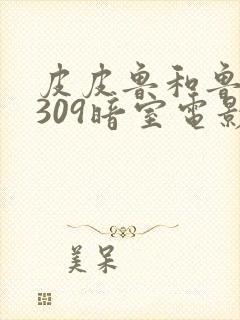 皮皮鲁和鲁
309暗室电影
美呆